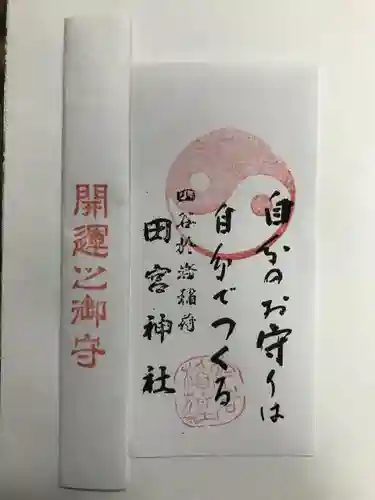 自分のお守りは
自分でつくる
四谷於岩稲荷
田宮神社
開運之御守